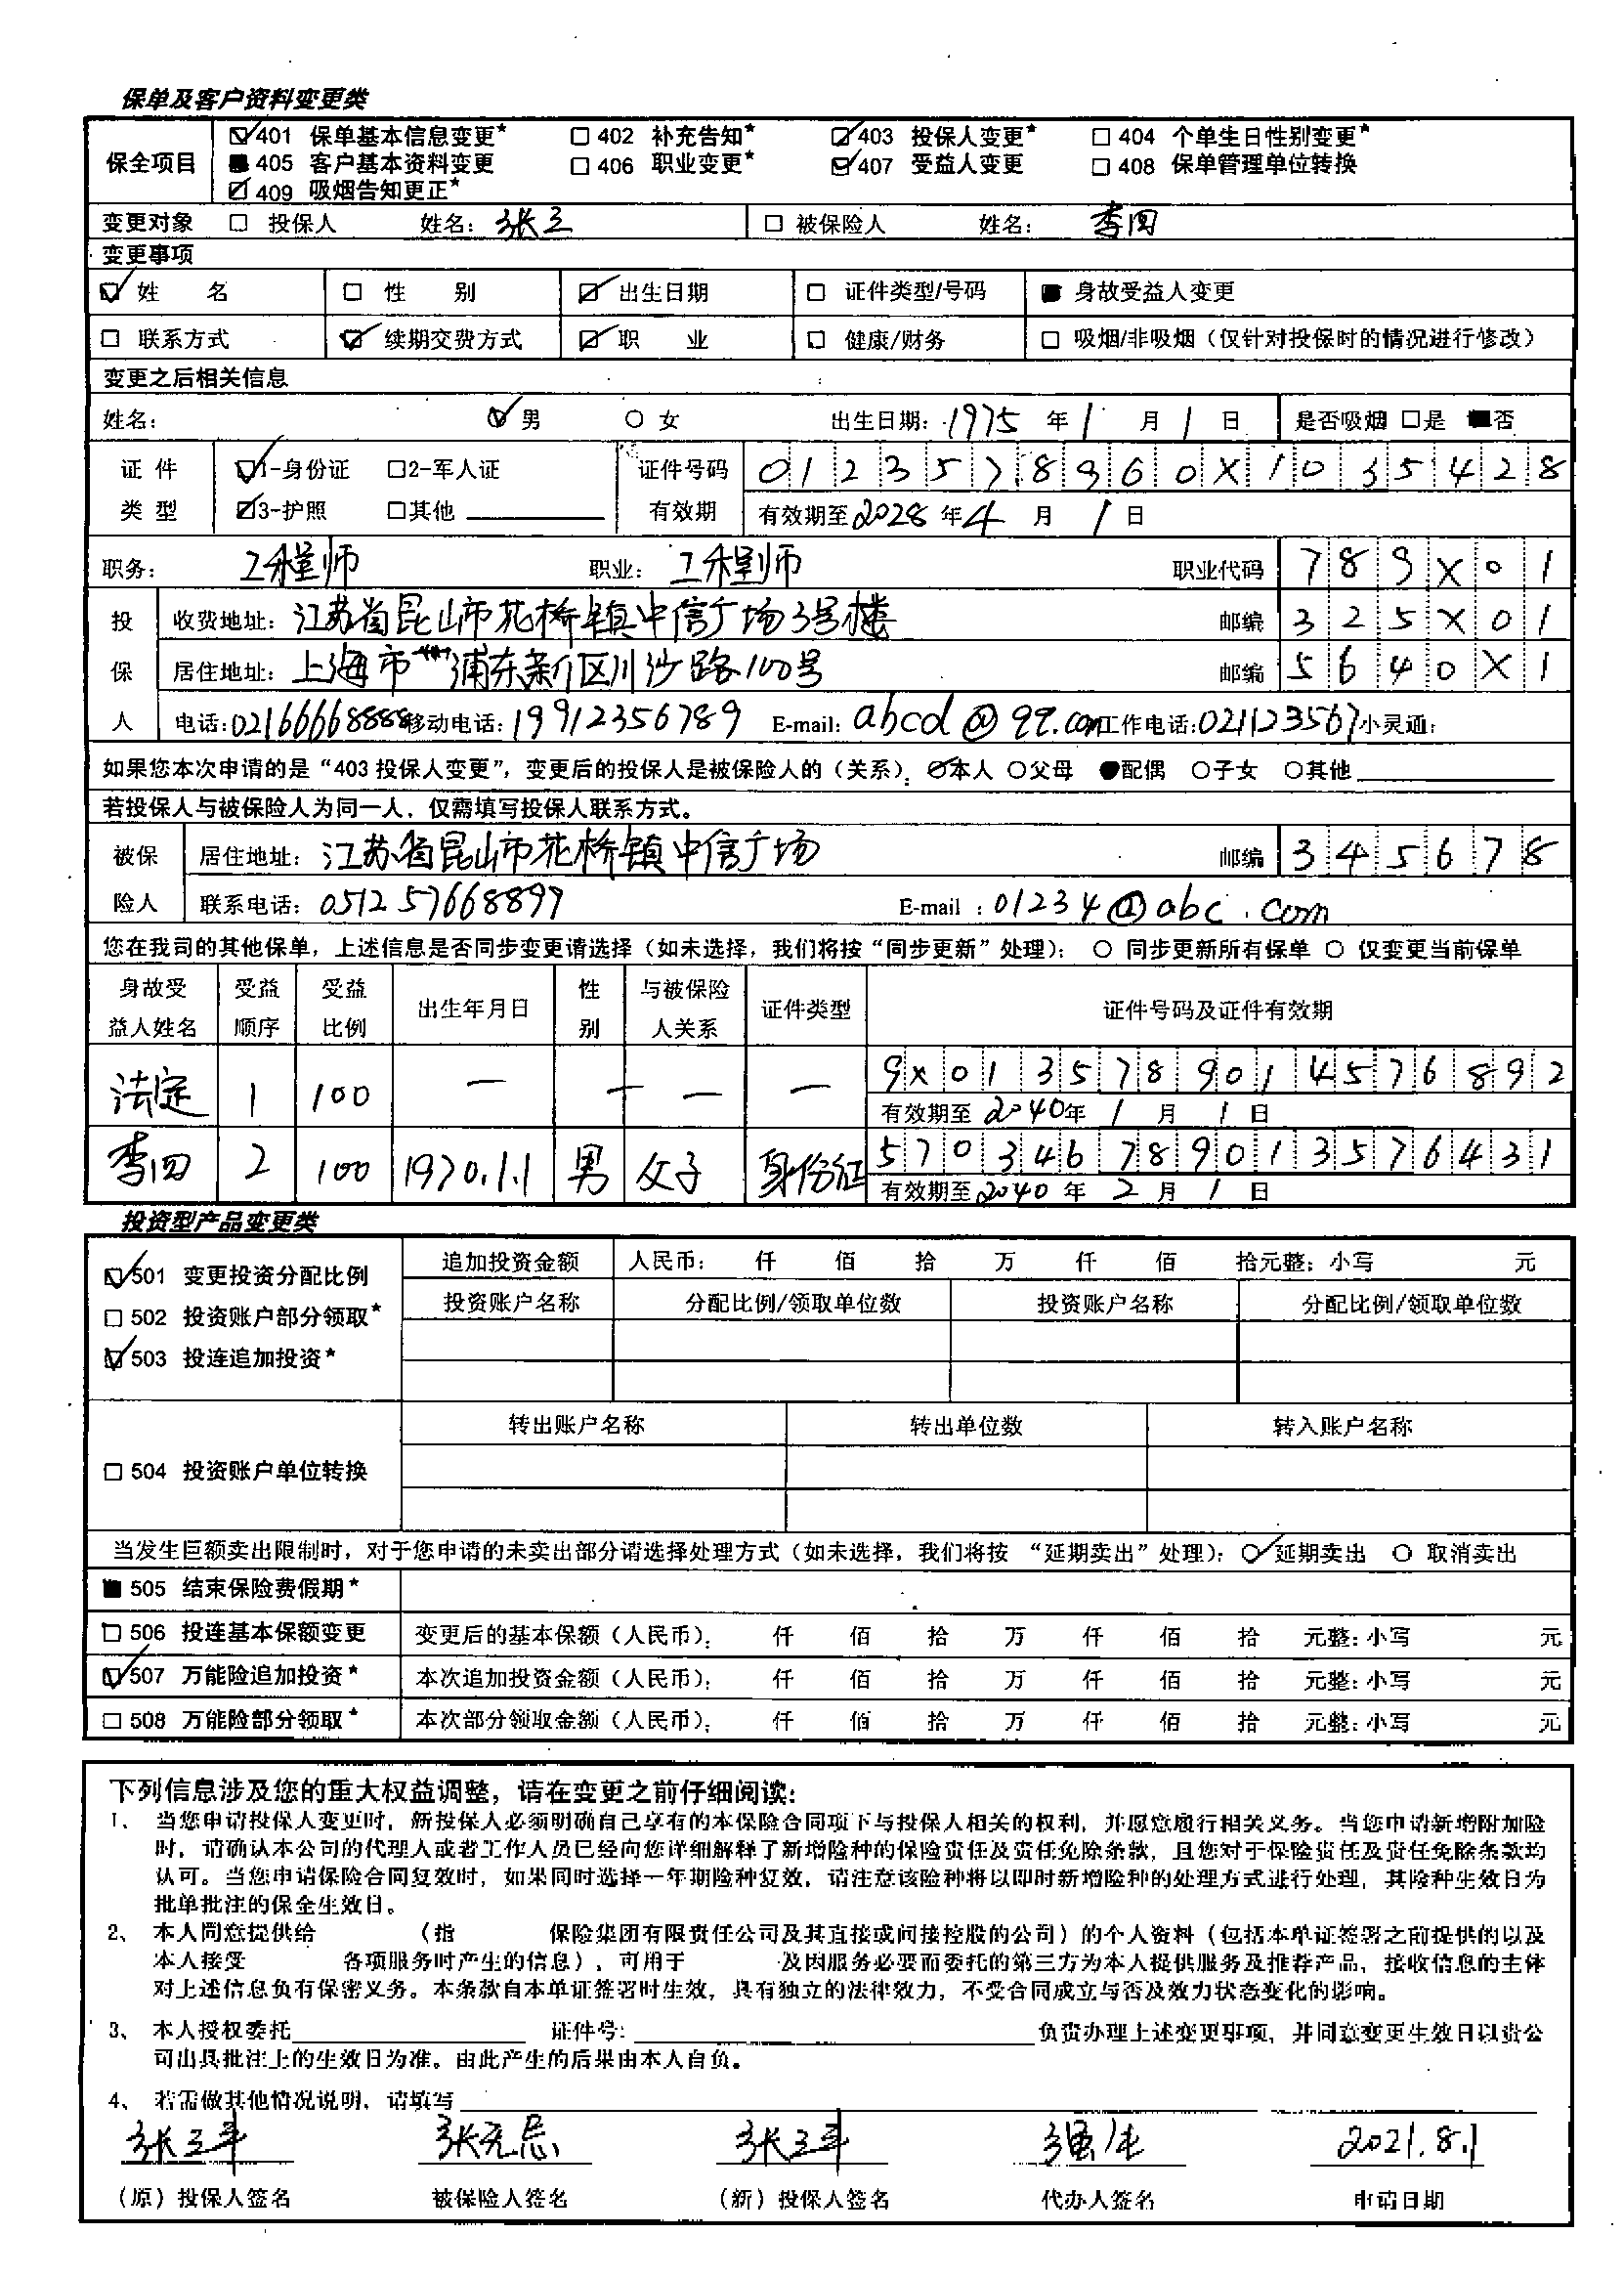 保单及客户资料变更类
保全项目 ☑401 保单基本信息变更* □402 补充告知* ☑403 投保人变更* □404 个单生日性别变更*
■405 客户基本资料变更 □406 职业变更* ☑407 受益人变更 □408 保单管理单位转换
☑409 吸烟告知更正*
变更对象 □ 投保人 姓名: 张三 □ 被保险人 姓名: 李四
变更事项
☑ 姓 名 □ 性 别 ☑ 出生日期 □ 证件类型/号码 ■ 身故受益人变更
□ 联系方式 ☑ 续期交费方式 ☑ 职 业 □ 健康/财务 □ 吸烟/非吸烟（仅针对投保时的情况进行修改）
变更之后相关信息
姓名: ☑男 ○女 出生日期: 1975 年 1 月 1 日 是否吸烟 □是 ■否
证件类型 ☑1-身份证 □2-军人证 证件号码 0123578960X1035428
☑3-护照 □其他 有效期 有效期至2028年4月1日
职务: 工程师 职业: 工程师 职业代码 789X01
投保人 收费地址: 江苏省昆山市花桥镇中信广场3号楼 邮编 325X01
居住地址: 上海市浦东新区川沙路100号 邮编 5640X1
电话:02166668888 移动电话:19912356789 E-mail: abcd@qq.com 工作电话:021123567 小灵通:
如果您本次申请的是“403 投保人变更”，变更后的投保人是被保险人的（关系）: ☑本人 ○父母 ●配偶 ○子女 ○其他
若投保人与被保险人为同一人，仅需填写投保人联系方式。
被保险人 居住地址: 江苏省昆山市花桥镇中信广场 邮编 345678
联系电话: 051257668899 E-mail :01234@abc.com
您在我司的其他保单，上述信息是否同步变更请选择（如未选择，我们将按“同步更新”处理）: ○ 同步更新所有保单 ○ 仅变更当前保单
身故受益人姓名 受益顺序 受益比例 出生年月日 性别 与被保险人关系 证件类型 证件号码及证件有效期
法定 1 100 — — — — 9X0135789014576892
有效期至2040年1月1日
李四 2 100 1970.1.1 男 父子 身份证 570346789013576431
有效期至2040年2月1日
投资型产品变更类
☑501 变更投资分配比例 追加投资金额 人民币: 仟 佰 拾 万 仟 佰 拾元整: 小写 元
□502 投资账户部分领取* 投资账户名称 分配比例/领取单位数 投资账户名称 分配比例/领取单位数
☑503 投连追加投资*
转出账户名称 转出单位数 转入账户名称
□504 投资账户单位转换
当发生巨额卖出限制时，对于您申请的未卖出部分请选择处理方式（如未选择，我们将按 “延期卖出”处理）: ☑延期卖出 ○ 取消卖出
■505 结束保险费假期*
□506 投连基本保额变更 变更后的基本保额（人民币）: 仟 佰 拾 万 仟 佰 拾 元整: 小写 元
☑507 万能险追加投资* 本次追加投资金额（人民币）: 仟 佰 拾 万 仟 佰 拾 元整: 小写 元
□508 万能险部分领取* 本次部分领取金额（人民币）: 仟 佰 拾 万 仟 佰 拾 元整: 小写 元
下列信息涉及您的重大权益调整，请在变更之前仔细阅读:
1、 当您申请投保人变更时，新投保人必须明确自己享有的本保险合同项下与投保人相关的权利，并愿意履行相关义务。当您申请新增附加险
时，请确认本公司的代理人或者工作人员已经向您详细解释了新增险种的保险责任及责任免除条款，且您对于保险责任及责任免除条款均
认可。当您申请保险合同复效时，如果同时选择一年期险种复效，请注意该险种将以即时新增险种的处理方式进行处理，其险种生效日为
批单批注的保全生效日。
2、 本人同意提供给 （指 保险集团有限责任公司及其直接或间接控股的公司）的个人资料（包括本单证签署之前提供的以及
本人接受 各项服务时产生的信息），可用于 及因服务必要而委托的第三方为本人提供服务及推荐产品，接收信息的主体
对上述信息负有保密义务。本条款自本单证签署时生效，具有独立的法律效力，不受合同成立与否及效力状态变化的影响。
3、 本人授权委托 证件号: 负责办理上述变更事项，并同意变更生效日以贵公
司出具批注上的生效日为准。由此产生的后果由本人自负。
4、 若需做其他情况说明，请填写
张三丰 张无忌 张三丰 2021.8.1
（原）投保人签名 被保险人签名 （新）投保人签名 代办人签名 申请日期